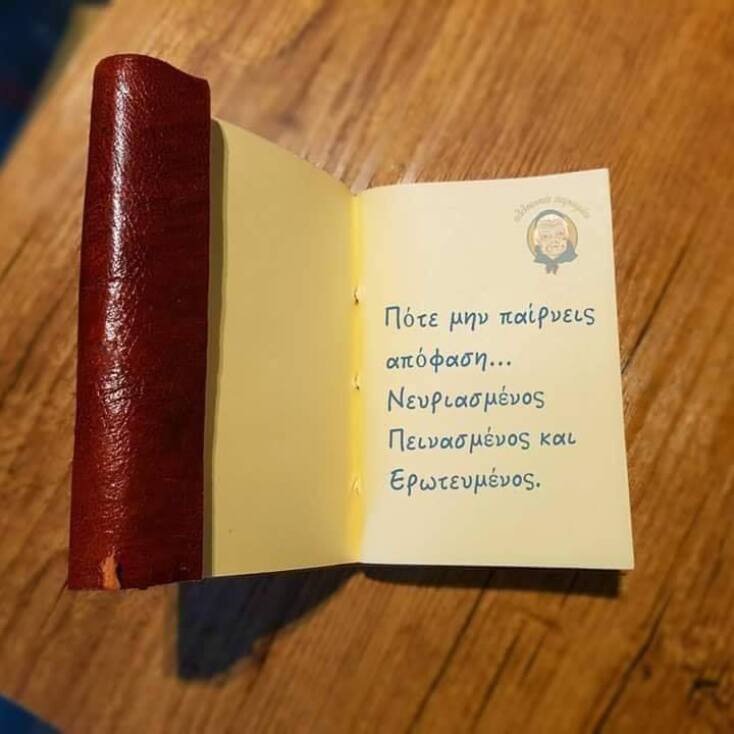 Πότε μην παίρνεις
απόφαση...
Νευριασμένος
Πεινασμένος και
Ερωτευμένος.